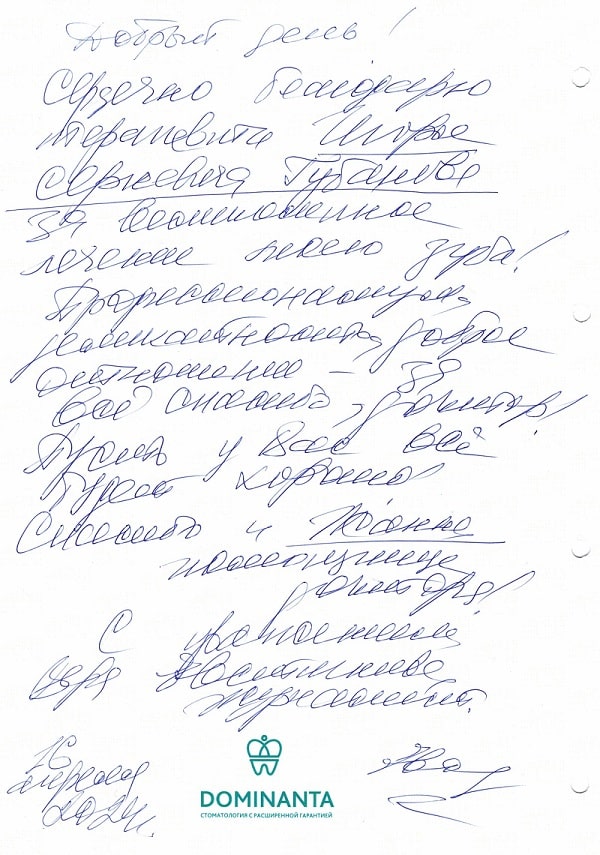 Добрый день!
Сердечно благодарю
терапевта Игоря
Сергеевича Губанова
за великолепное
лечение моего зуба!
Профессионализм,
деликатность, доброе
отношение – за
всё спасибо, доктор!
Пусть у Вас всё
будет хорошо!
Спасибо и Жанне
помощнице
доктора!
С уважением
журналист.
16
апреля
2024г.
DOMINANTA
СТОМАТОЛОГИЯ С РАСШИРЕННОЙ ГАРАНТИЕЙ